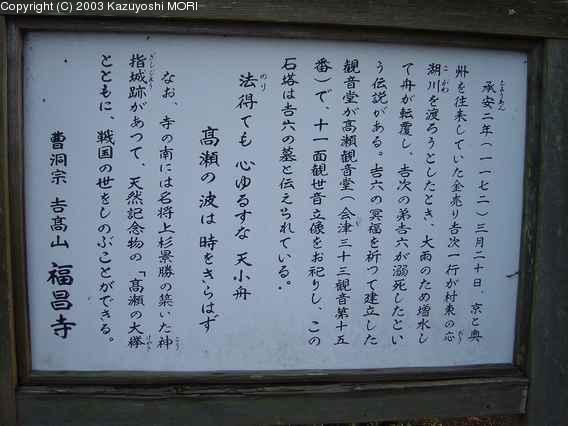 Copyright (C) 2003 Kazuyoshi MORI
承安二年(一一七二)三月二十日、京と奥
州を往来していた金売り吉次一行が村東の応
湖川を渡ろうとしたとき、大雨のため増水し
て舟が転覆し、吉次の弟吉六が溺死したとい
う伝説がある。吉六の冥福を祈つて建立した
観音堂が高瀬観音堂(会津三十三観音第十五
番)で、十一面観世音立像をお祀りし、この
石塔は吉六の墓と伝えられている。
法得ても 心ゆるすな 天小舟
高瀬の波は 時をきらはず
なお、寺の南には名将上杉景勝の築いた神
指城跡があつて、天然記念物の「高瀬の大欅
とともに、戦国の世をしのぶことができる。
曹洞宗 吉高山 福昌寺